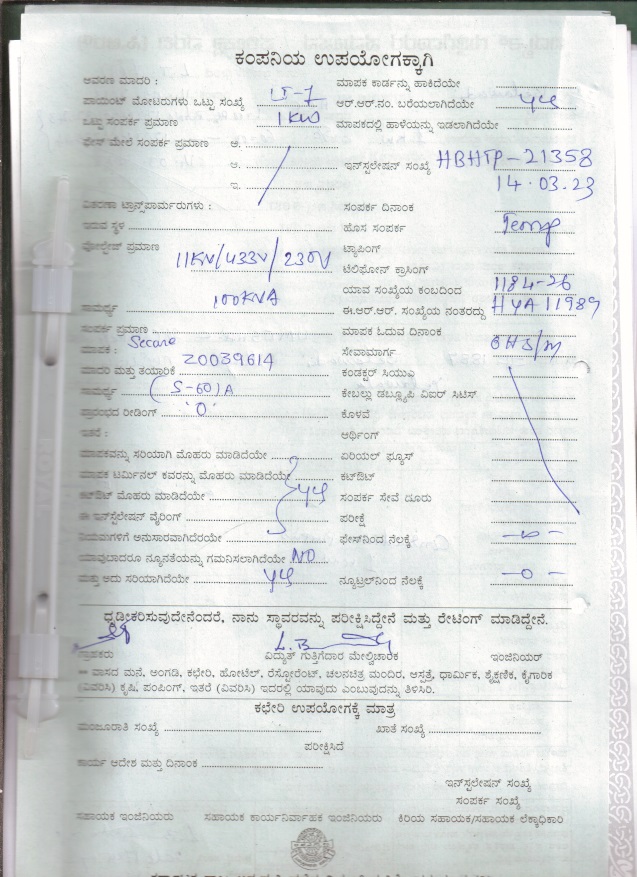 ಕಂಪನಿಯ ಉಪಯೋಗಕ್ಕಾಗಿ
ಆವರಣ ಮಾದರಿ : LT-7 ಮಾಪಕ ಕಾರ್ಡನ್ನು ಹಾಕಿದೆಯೇ
ಪಾಯಿಂಟ್ ಮೋಟರುಗಳು ಒಟ್ಟು ಸಂಖ್ಯೆ ಆರ್.ಆರ್.ನಂ. ಬರೆಯಲಾಗಿದೆಯೇ
ಒಟ್ಟು ಸಂಪರ್ಕ ಪ್ರಮಾಣ 1KW ಮಾಪಕದಲ್ಲಿ ಹಾಳೆಯನ್ನು ಇಡಲಾಗಿದೆಯೇ
ಫೇಸ್ ಮೇಲೆ ಸಂಪರ್ಕ ಪ್ರಮಾಣ ಅ.
ಆ. ಇನ್‌ಸ್ಟಲೇಷನ್ ಸಂಖ್ಯೆ HBHTP-21358
ಇ. 14.03.23
ವಿತರಣಾ ಟ್ರಾನ್ಸ್‌ಪಾರ್ಮರುಗಳು : ಸಂಪರ್ಕ ದಿನಾಂಕ
ಇರುವ ಸ್ಥಳ ಹೊಸ ಸಂಪರ್ಕ Temp
ವೋಲ್ಟೇಜ್ ಪ್ರಮಾಣ 11KV/433V/230V ಟ್ಯಾಪಿಂಗ್
ಟೆಲಿಫೋನ್ ಕ್ರಾಸಿಂಗ್
100KVA ಯಾವ ಸಂಖ್ಯೆಯ ಕಂಬದಿಂದ 1184-26
ಸಾಮರ್ಥ್ಯ ಈ.ಆರ್.ಆರ್. ಸಂಖ್ಯೆಯ ನಂತರದ್ದು HYA11989
ಸಂಪರ್ಕ ಪ್ರಮಾಣ ಮಾಪಕ ಓದುವ ದಿನಾಂಕ
ಮಾಪಕ : Secure 20039614 ಸೇವಾಮಾರ್ಗ OHS/M
ಮಾದರಿ ಮತ್ತು ತಯ್ಯಾರಿಕೆ ಕಂಡಕ್ಟರ್ ಸಿಯುಎ
ಸಾಮರ್ಥ್ಯ (5-60)A ಕೇಬಲ್ಲು ಡಬ್ಲ್ಯೂಪಿ ವಿಐರ್ ಸಿಟಿಸ್
ಪ್ರಾರಂಭದ ರೀಡಿಂಗ್ '0' ಕೊಳವೆ
ಇತರೆ : ಆರ್ಥಿಂಗ್
ಮಾಪಕವನ್ನು ಸರಿಯಾಗಿ ಮೊಹರು ಮಾಡಿದೆಯೇ ಏರಿಯಲ್ ಫ್ಯೂಸ್
ಮಾಪಕ ಟರ್ಮಿನಲ್ ಕವರನ್ನು ಮೊಹರು ಮಾಡಿದೆಯೇ ಕಟ್‌ಔಟ್
ಕಟ್‌ಔಟ್ ಮೊಹರು ಮಾಡಿದೆಯೇ ಸಂಪರ್ಕ ಸೇವೆ ದೂರು
ಈ ಇನ್‌ಸ್ಟಲೇಷನ್ ವೈರಿಂಗ್ ಪರೀಕ್ಷೆ
ನಿಯಮಗಳಿಗೆ ಅನುಸಾರವಾಗಿದೆರೆಯೇ ಫೇಸ್‌ನಿಂದ ನೆಲಕ್ಕೆ
ಯಾವುದಾದರೂ ನ್ಯೂನತೆಯನ್ನು ಗಮನಿಸಲಾಗಿದೆಯೇ NO
ಮತ್ತು ಅದು ಸರಿಯಾಗಿದೆಯೇ ನ್ಯೂಟ್ರಲ್‌ನಿಂದ ನೆಲಕ್ಕೆ -0-
ಧೃಡೀಕರಿಸುವುದೇನೆಂದರೆ, ನಾನು ಸ್ಥಾವರವನ್ನು ಪರೀಕ್ಷಿಸಿದ್ದೇನೆ ಮತ್ತು ರೇಟಿಂಗ್ ಮಾಡಿದ್ದೇನೆ.
ಗ್ರಾಹಕರು ವಿದ್ಯುತ್ ಗುತ್ತಿಗೆದಾರ ಮೇಲ್ವಿಚಾರಕ ಇಂಜಿನಿಯರ್
** ವಾಸದ ಮನೆ, ಅಂಗಡಿ, ಕಛೇರಿ, ಹೋಟೆಲ್, ರೆಸ್ಟೋರೆಂಟ್, ಚಲನಚಿತ್ರ ಮಂದಿರ, ಆಸ್ಪತ್ರೆ, ಧಾರ್ಮಿಕ, ಶೈಕ್ಷಣಿಕ, ಕೈಗಾರಿಕ
(ವಿವರಿಸಿ) ಕೃಷಿ, ಪಂಪಿಂಗ್, ಇತರೆ (ವಿವರಿಸಿ) ಇದರಲ್ಲಿ ಯಾವುದು ಎಂಬುವುದನ್ನು ತಿಳಿಸಿರಿ.
ಕಛೇರಿ ಉಪಯೋಗಕ್ಕೆ ಮಾತ್ರ
ಮಂಜೂರಾತಿ ಸಂಖ್ಯೆ ಖಾತೆ ಸಂಖ್ಯೆ
ಪರೀಕ್ಷಿಸಿದೆ
ಕಾರ್ಯ ಆದೇಶ ಮತ್ತು ದಿನಾಂಕ
ಇನ್‌ಸ್ಟಲೇಷನ್ ಸಂಖ್ಯೆ
ಸಂಪರ್ಕ ಸಂಖ್ಯೆ
ಸಹಾಯಕ ಇಂಜಿನಿಯರು ಸಹಾಯಕ ಕಾರ್ಯನಿರ್ವಾಹಕ ಇಂಜಿನಿಯರು ಕಿರಿಯ ಸಹಾಯಕ/ಸಹಾಯಕ ಲೆಕ್ಕಾಧಿಕಾರಿ